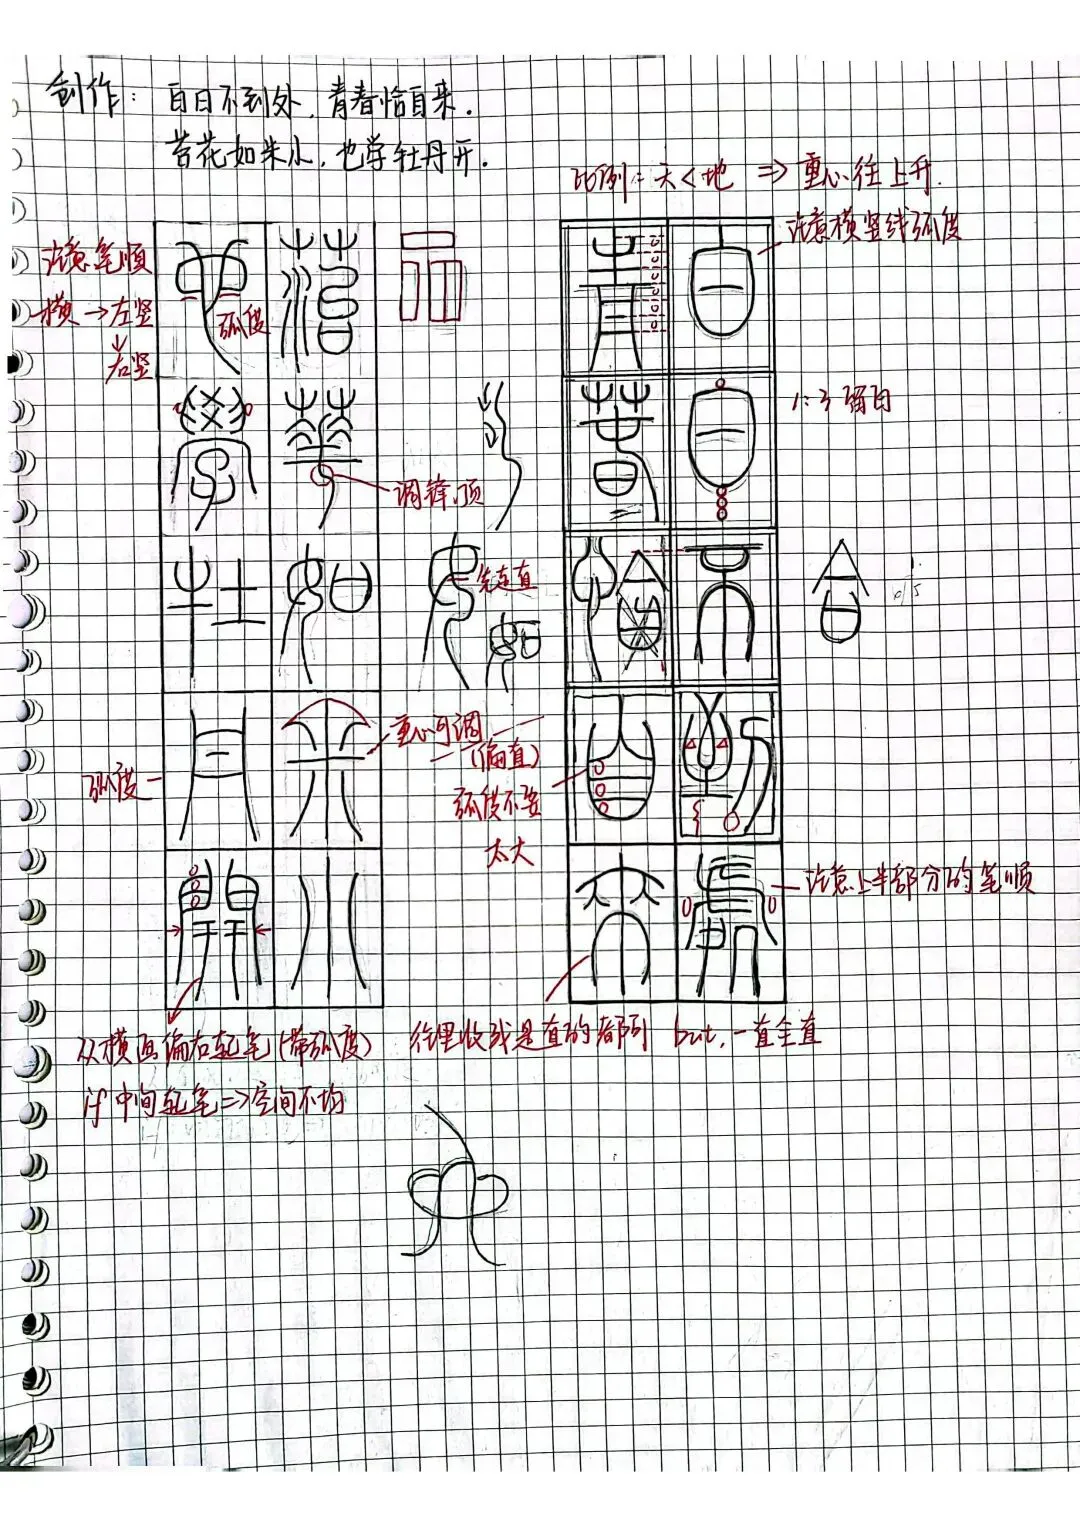 创作: 白日不到处, 青春恰自来.
苔花如米小, 也学牡丹开.
比例: 天<地 => 重心往上升.
注意横竖线弧度
白
日
不
到
處
1:3 留白
注意上半部分的笔顺
青
春
恰
自
來
弧度不要
太大
往里收或是直的都阿 but, 一直全直
苔
華
如
米
小
调锋顶
先连直
重心可调
(偏直)
也
學
牡
丹
開
注意笔顺
横→左竖
↓
右竖
弧度
弧度
从横画偏右起笔(带弧度)
if 中间起笔=>空间不均